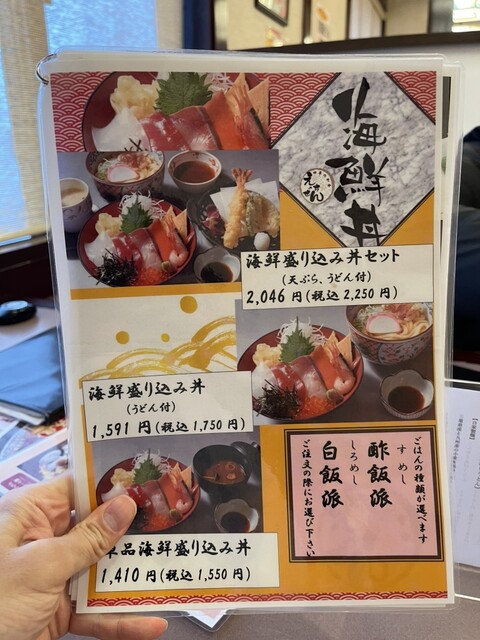 海鮮丼
海鮮盛り込み丼セット
(天ぷら、うどん付)
2,046 円(税込 2,250 円)
海鮮盛り込み丼
(うどん付)
1,591 円(税込 1,750 円)
品海鮮盛り込み丼
1,410 円(税込 1,550 円)
ごはんの種類が選べます
すめし
酢飯派
しろめし
白飯派
ご注文の際にお選び下さい